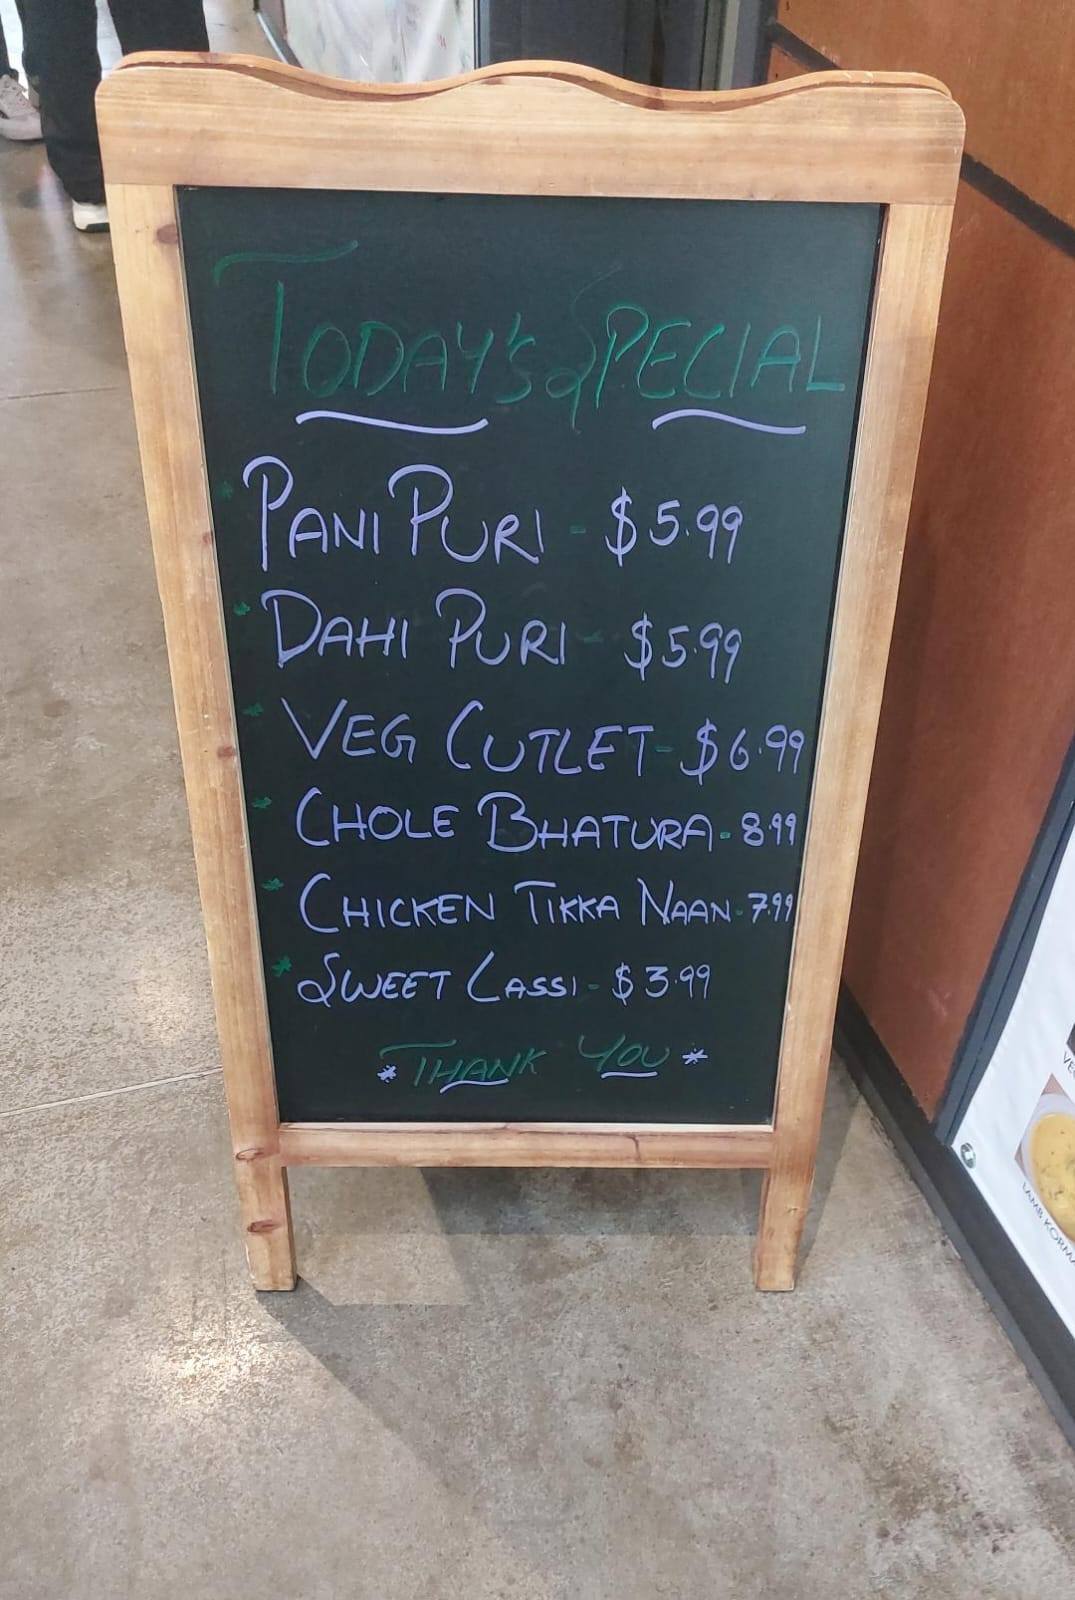 TODAY'S SPECIAL
* PANI PURI - $5.99
* DAHI PURI - $5.99
* VEG CUTLET - $6.99
* CHOLE BHATURA - 8.99
* CHICKEN TIKKA NAAN - 7.99
* SWEET LASSI - $3.99
* THANK YOU *
LAMB KORMA